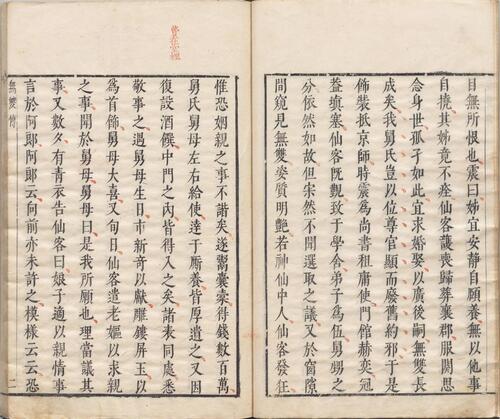 目無所恨也震曰姊宜安靜自頤養無以他事
自撓其姊竟不痊仙客護喪歸葬襄鄧服闋思
念身世孤孑如此宜求婚娶以廣後嗣無雙長
成矣我舅氏豈以位尊官顯而廢舊約邪于是
飾裝抵京師時震爲尚書租庸使門館赫奕冠
蓋塡塞仙客既覲致于學舍弟子爲伍舅甥之
分依然如故但寂然不聞選取之議又於窗隙
間窺見無雙姿質明艷若神仙中人仙客發狂
惟恐姻親之事不諧矣遂鬻囊橐得錢數百萬
舅氏舅母左右給使達于厮養皆厚遺之又因
復設酒饌中門之內皆得入之矣諸表同處悉
敬事之遇舅母生日市新奇以獻雕鏤犀玉以
爲首飾舅母大喜又旬日仙客遣老嫗以求親
之事聞於舅母舅母曰是我所願也理當議其
事又數夕有青衣告仙客曰娘子適以親情事
言於阿郎阿郎云向前亦未許之模樣云云恐
無雙傳
二